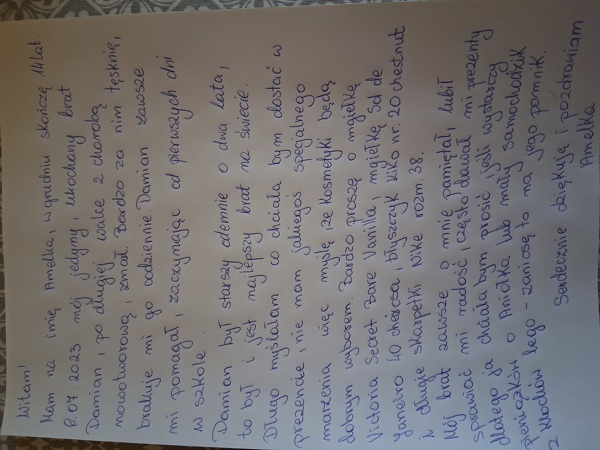 Witam!
Mam na imię Amelka, w grudniu skończę 14 lat.
8.07.2023 mój jedyny, ukochany brat
Damian, po długiej walce z chorobą
nowotworową, zmarł. Bardzo za nim tęsknię,
brakuje mi go codziennie. Damian zawsze
mi pomagał, zaczynając od pierwszych dni
w szkole.
Damian był starszy odemnie o dwa lata,
to był i jest najlepszy brat na świecie.
Długo myślałam co chciała bym dostać w
prezencie, nie mam jakiegoś specjalnego
marzenia więc myślę, że kosmetyki będą
dobrym wyborem. Bardzo proszę o mgiełkę
Victoria Secret Bare Vanilla, mgiełkę Sol de
Janeiro 40 cheirosa, błyszczyk Kiko nr. 20 chestnut
i długie skarpetki Nike rozm. 38.
Mój brat zawsze o mnie pamiętał, lubił
sprawiać mi radość, często dawał mi prezenty
dlatego ja chciała bym prosić, jeśli wystarczy
pieniążków o Aniołka lub mały samochodzik
z klocków lego - zaniosę to na jego pomnik.
Serdecznie dziękuję i pozdrawiam
Amelka